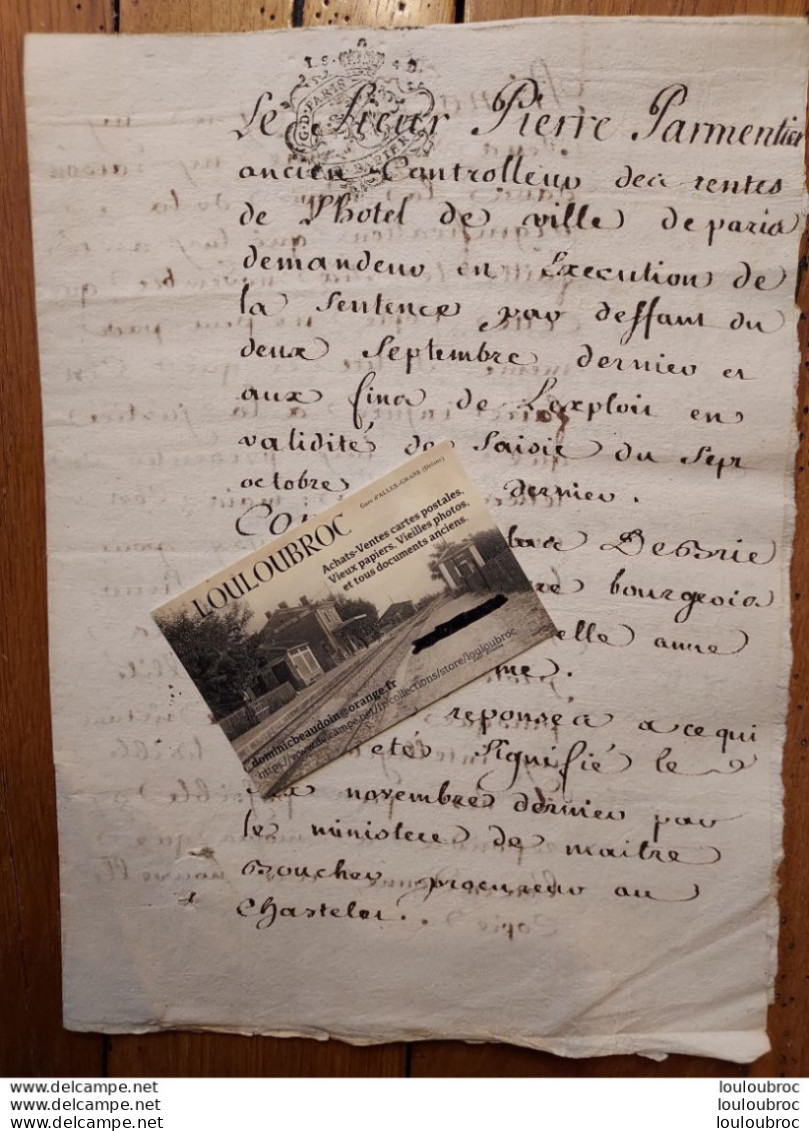 1 S 4 D.
G. D. PARIS
PAPIER
Le Sieur Pierre Parmentier
ancien Controlleur des rentes
de l'hotel de ville de paris
demandeur en Execution de
la Sentence par deffaut du
deux Septembre dernier et
aux fins de Lexploit en
validité de Saisie du Sept
octobre dernier.
bourgeois
elle anne
me.
reponses a ce qui
eté Signifié le
novembre dernier par
le ministere de maitre
Boucher procureur au
Chastelet.
Gare d'ALLEX-GRANE (Drôme)
LOULOUBROC
Achats-Ventes cartes postales,
Vieux papiers, Vieilles photos,
et tous documents anciens.
dominicbeaudoin@orange.fr
https://www.delcampe.net/fr/collections/store/louloubroc
Website : www.delcampe.net
Website : www.delcampe.net
Website : www.delcampe.net
louloubroc
louloubroc
louloubroc